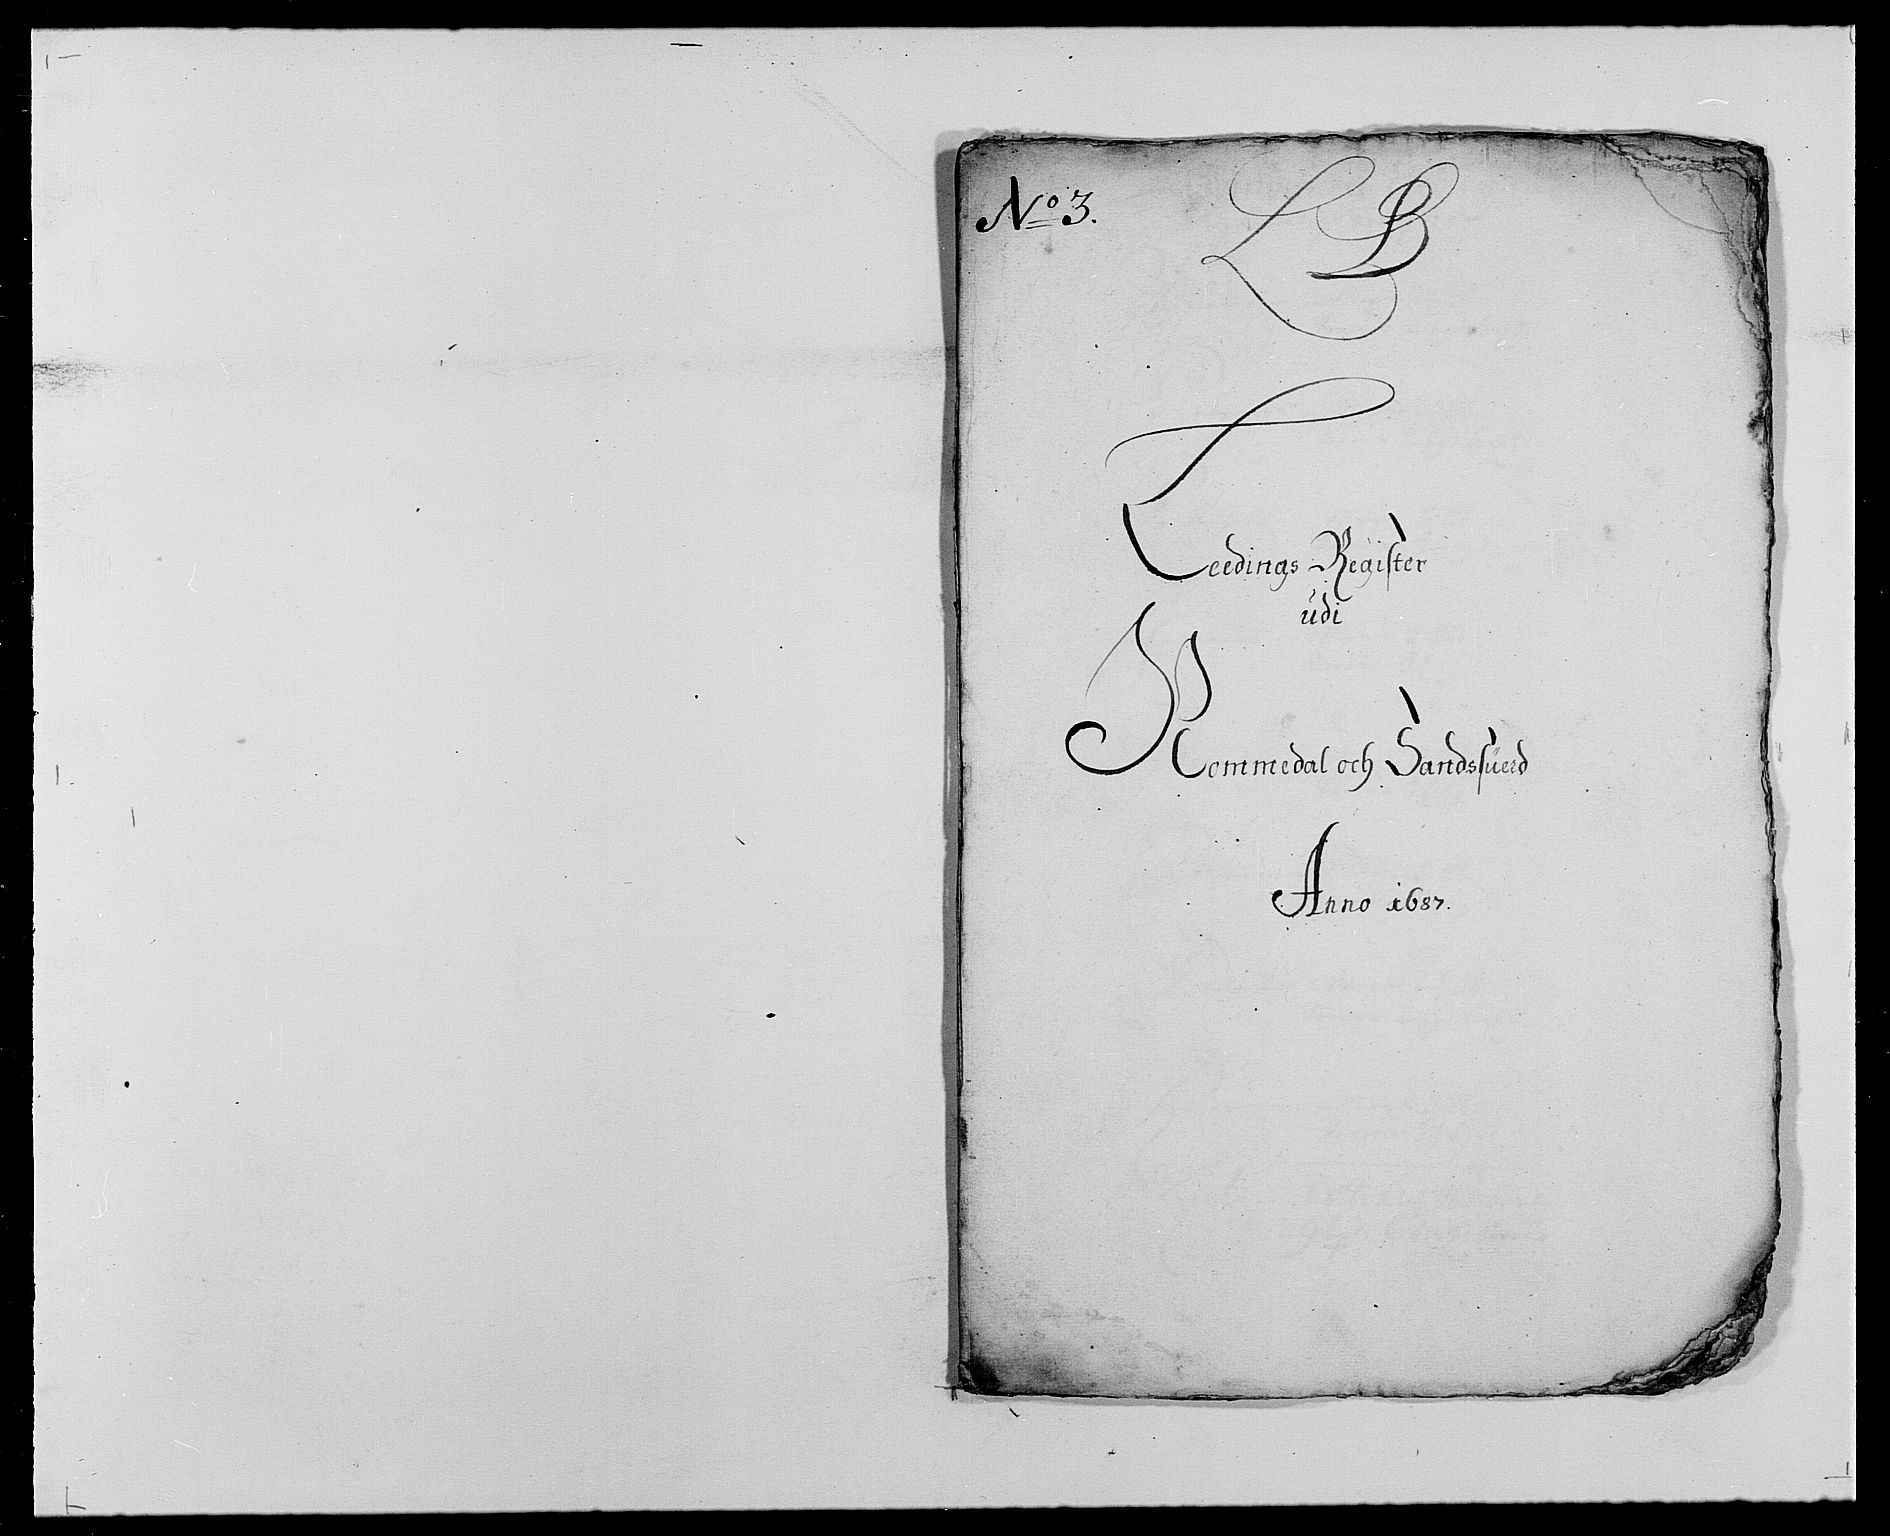 No 3.
LB
Leedings Register
udi
Nommedal och Sandsüerd
Anno 1687.